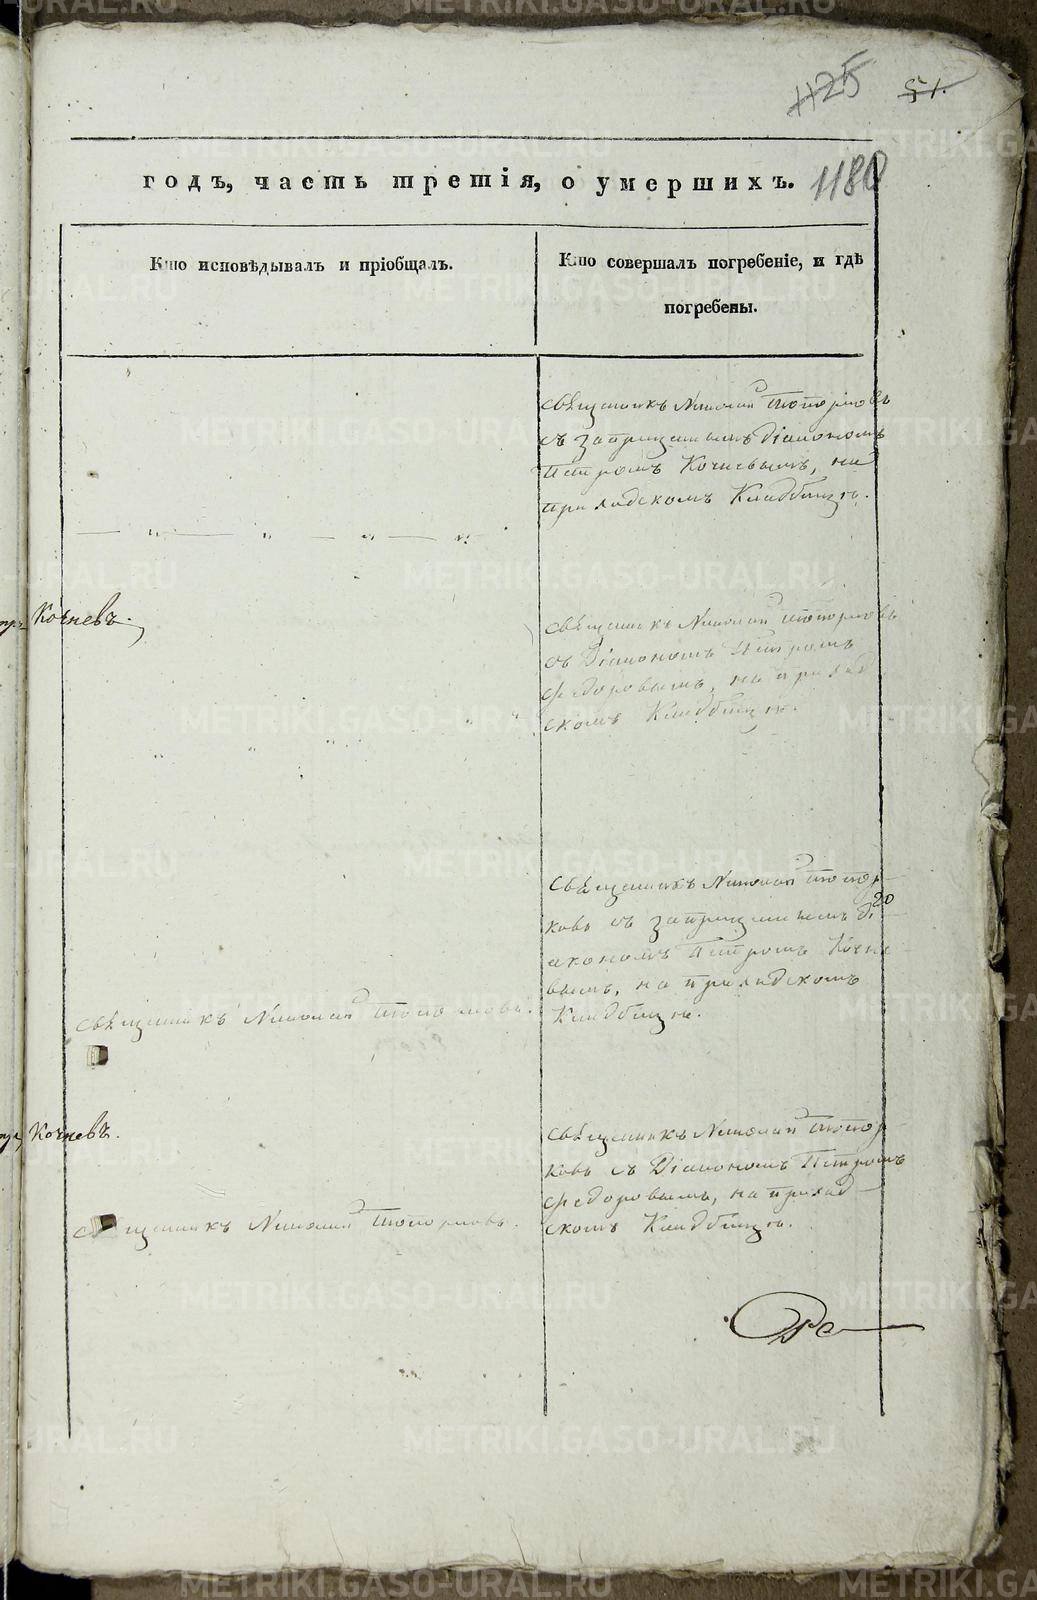 1125 51.
годъ, часть третія, о умершихъ. 1180
Кто исповѣдывалъ и пріобщалъ.
Кто совершалъ погребеніе, и гдѣ
погребены.
священникъ Николай Топорковъ
съ запрещеннымъ Діакономъ
Петромъ Кочневымъ, на
приходскомъ Кладбищѣ.
Кочневъ.
священникъ Николай Топорковъ
съ Діакономъ Петромъ
Федоровымъ, на приход
скомъ Кладбищѣ.
священникъ Николай Топор-
ковъ съ запрещеннымъ Ді
акономъ Петромъ Кочне
вымъ, на приходскомъ
Кладбищѣ.
20
священникъ Николай Топорковъ.
Кочневъ.
священникъ Николай Топор-
ковъ съ Діакономъ Петромъ
Федоровымъ, на приход-
скомъ Кладбищѣ.
священникъ Николай Топорковъ.
METRIKI.GASO-URAL.RU